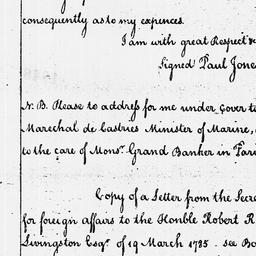 consequently as to my expences.
I am with great Respect &
Signed Paul Jone
N. B. Please to address for me under Cover to
Marechal de Castries Minister of Marine,
to the care of Monsr. Grand Banker in Pari
Copy of a Letter from the Secre
for foreign affairs to the Honble Robert R
Livingston Esqr. of 19 March 1785 - see Bo